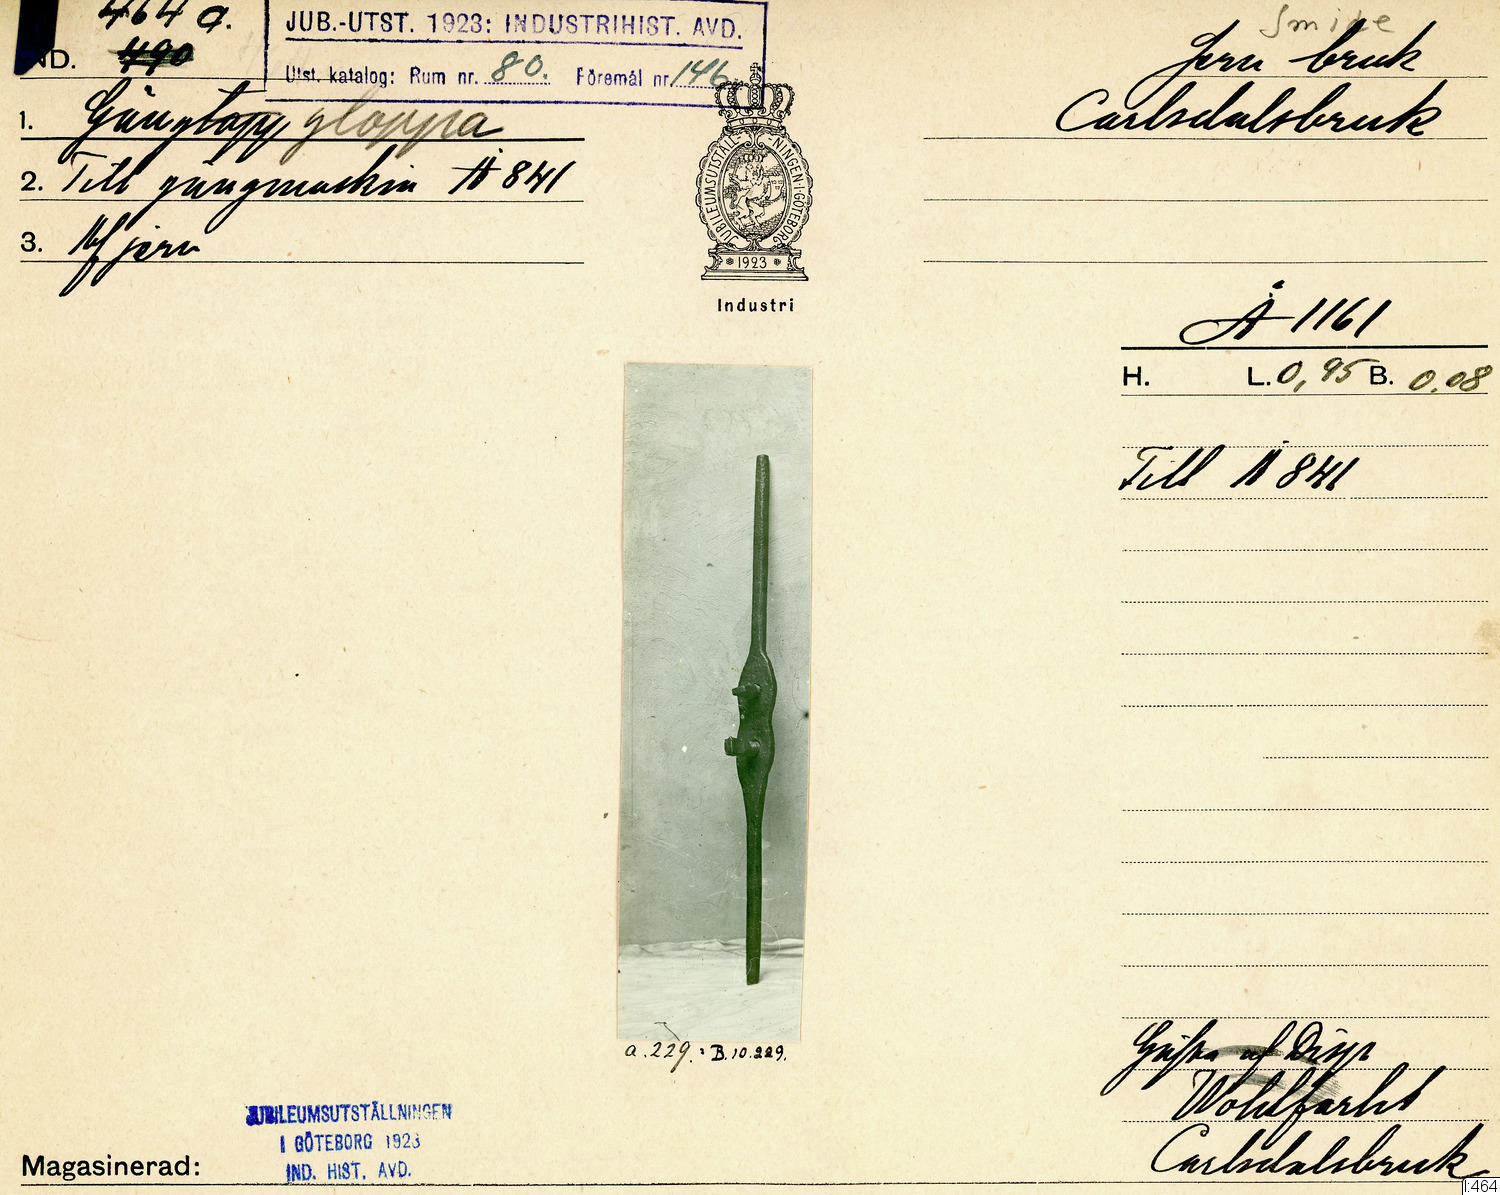 464 a.
IND. 490
JUB.-UTST. 1923: INDUSTRIHIST. AVD.
Utst. katalog: Rum nr. 80. Föremål nr. 146
Smide
Jern bruk
Carlsdalsbruk
1. Gängtapp gloppa
2. Till gängmaskin Å 841
3. Af jern
JUBILEUMSUTSTÄLLNINGEN·I·GÖTEBORG
1923
Industri
Å 1161
H. L. 0,95 B. 0.08
Till Å 841
a.229. : B.10.229.
Gåfva af Disp
Wohlfarht
Carlsdalsbruk
JUBILEUMSUTSTÄLLNINGEN
I GÖTEBORG 1923
IND. HIST. AVD.
Magasinerad:
I:464